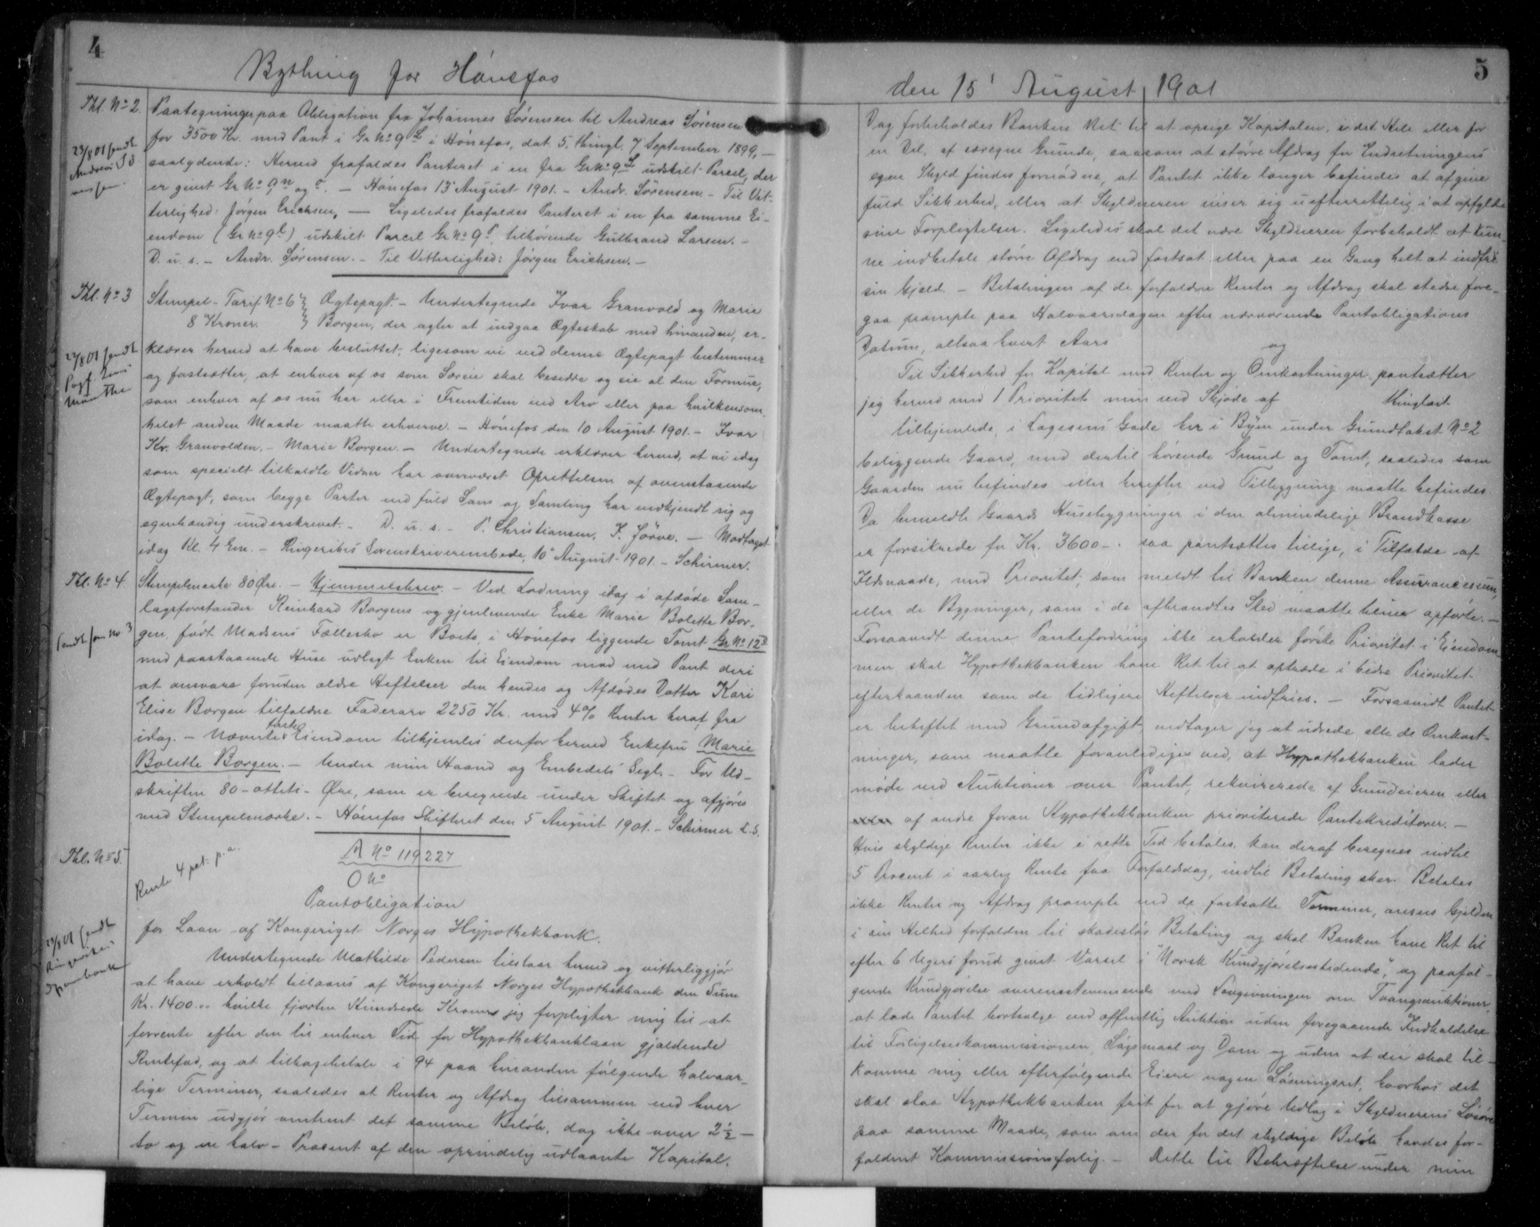 4
Bything for Hönefos
Thl. No 2
Paategninger paa Obligation fra Johannes Sørensen til Andreas Sørensen
for 3500 Kr. med Pant i Gr No 9 b i Hönefos, dat. 5, thingl. 7 September 1899,
saalydende: Herved frafaldes Panteret i en fra Gr No 9 b udskilt Parcel, der
er givet Gr No 9 n og o. - Hönefos 13 August 1901. - Andr. Sørensen. - Til Vit-
terlighed: Jörgen Ericksen. - Ligeledes frafaldes Panteret i en fra samme Ei-
endom (Gr No 9 b) udskilt Parcel Gr No 9 tilhörende Gulbrand Larsen. -
D. u. s. - Andr. Sørensen. - Til Vitterlighed: Jörgen Ericksen. -
23/8 01 sendt
Thl. No 3
Stempel-Tarif No 6 } Ægtepagt. - Undertegnede Ivar Granvold og Marie
8 Kroner. } Borgen, der agter at indgaa Ægteskab med hinanden, er-
klærer herved at have besluttet, ligesom vi ved denne Ægtepagt bestemmer
og fastsætter, at enhver af os som Særeie skal besidde og eie al den Formue,
som enhver af os nu har eller i Fremtiden ved Arv eller paa hvilkensom-
helst anden Maade maatte erhverve. - Hönefos den 10 August 1901. - Ivar
Kr. Granvolden. - Marie Borgen. - Undertegnede erklærer herved, at vi idag
som specielt tilkaldte Vidner har overværet Oprettelsen af ovenstaaende
Ægtepagt, som begge Parter ved fuld Sans og Samling har vedkjendt sig og
egenhændig underskrevet. - D. u. s. - P. Christiansen, K. Sörve. - Modtaget
idag Kl. 4 Em. - Ringerikes Sorenskriverembede, 10 August 1901. - Schirmer.
23/8 01 sendt
Thl. No 4
Stempelmærke 80 Øre. - Hjemmelsbrev. - Ved Lodning idag i afdøde Sam-
lagsforstander Reinhard Borgens og gjenlevende Enke Marie Bolette Bor-
gen, født Madsens Fællesbo er Boets, i Hönefos liggende Tomt Gr No 12 b
med paastaaende Huse udlagt Enken til Eiendom mod med Pant deri
at ansvare foruden ældre Heftelser den hendes og Afdødes Datter Kari
Elise Borgen tilfaldne Fadersarv 2250 Kr. med 4% Renter heraf fra
idag. - Nævnte faste Eiendom tilhjemles derfor herved Enkefru Marie
Bolette Borgen. - Under min Haand og Embedets Segl. - For Ud-
skriften 80 - otteti - Øre, som er beregnede under Skiftet og afgjöres
med Stempelmærke. - Hönefos Skifteret den 5 August 1901. - Schirmer L.S.
sendt som No 3
Thl. No 5
Rente 4 pct. p.a.
A No 119227
O No
Pantobligation
for Laan af Kongeriget Norges Hypothekbank.
Undertegnede Mathilde Pedersen tilstaar herved og vitterliggjör
at have erholdt tillaans af Kongeriget Norges Hypothekbank den Sum
Kr. 1400 .. hvilke fjorten Hundrede Kroner jeg forpligter mig til at
forrente efter den til enhver Tid for Hypothekbanklaan gjældende
Rentefod, og at tilbagebetale i 94 paa hverandre følgende halvaar-
lige Terminer, saaledes at Renter og Afdrag tilsammen ved hver
Termin udgjör omtrent det samme Belöb, dog ikke over 2 1/2 -
to og en halv - Procent af den oprindelig udlaante Kapital.
23/8 01 sendt
5
den 15' August 1901
Dog forbeholdes Banken Ret til at opsige Kapitalen, i det Hele eller for
en Del, af særegne Grunde, saasom at större Afdrag for Indretningens
egen Skyld findes fornödne, at Pantet ikke længer befindes at afgive
fuld Sikkerhed, eller at Skyldneren viser sig uefterrettelig i at opfylde
sine Forpligtelser. Ligeledes skal det være Skyldneren forbeholdt at kun-
ne indbetale större Afdrag end fastsat eller paa en Gang helt at indfri
sin Gjeld. - Betalingen af de forfaldne Renter og Afdrag skal stedse fore-
gaa prompte paa Halvaarsdagen efter nærværende Pantobligations
Datum, altsaa hvert Aars og
Til Sikkerhed for Kapital med Renter og Omkostninger pantsætter
jeg herved med 1 Prioritet min ved Skjøde af thinglæst
tilhjemlede, i Lagesens Gade her i Byen under Grundtakst No 2
beliggende Gaard, med dertil hörende Grund og Tomt, saaledes som
Gaarden nu befindes eller herefter ved Tilbygning maatte befindes
Da bemeldte Gaards Husebygninger i den almindelige Brandkasse
er forsikrede for Kr. 3600 - saa pantsættes tillige, i Tilfælde af
Ildsvaade, med Prioritet, som meldt til Banken denne Assurancesum,
eller de Bygninger, som i de afbrændtes Sted maatte blive opförte. -
Forsaavidt denne Pantefordring ikke erholder förste Prioritet i Eiendom-
men skal Hypothekbanken have Ret til at optræde i bedre Prioritet
efterhaanden som de tidligere Heftelser indfries. - Forsaavidt Pantet
er beheftet med Grundafgift, vedtager jeg at udrede alle de Omkost-
ninger, som maatte foranlediges ved, at Hypothekbanken lader
møde ved Auktioner over Pantet, rekvirerede af Grundeieren eller
af andre foran Hypothekbanken prioriterede Pantekreditorer. -
Hvis skyldige Renter ikke i rette Tid betales, kan deraf beregnes indtil
5 Procent i aarlig Rente fra Forfaldsdag, indtil Betaling sker. Betales
ikke Renter og Afdrag prompte ved de fastsatte Terminer, ansees Gjælden
i sin Helhed forfalden til skadeslös Betaling og skal Banken have Ret til
efter 6 Ugers forud givet Varsel i "Norsk Kundgjørelsestidende," og paaföl-
gende Kundgjørelse overensstemmende med Lovgivningen om Tvangsauktioner,
at lade Pantet bortsælge ved offentlig Auktion uden foregaaende Indkaldelse
til Forligelseskommissionen, Lögsmaal og Dom og uden at der skal til-
komme mig eller efterfölgende Eiere nogen Lösningsret, hvorhos det
skal staa Hypothekbanken frit for at gjöre Udlæg i Skyldnerens Lösöre
paa samme Maade, som om der for det skyldige Belöb havdes for-
faldent Kommissionsforlig. - Dette til Bekræftelse under min